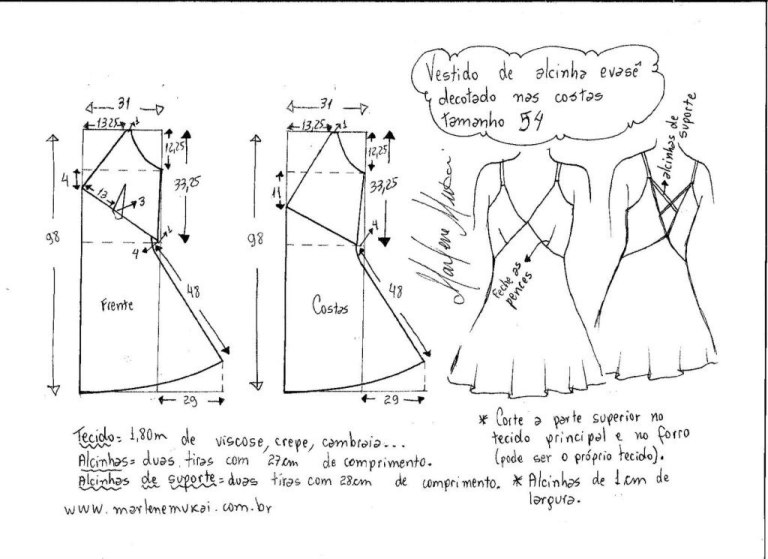 Vestido de alcinha evasê
decotado nas costas
tamanho 54
31
13,25
1
12,25
4
13
3
33,25
1
4
98
48
Frente
29
31
13,25
1
12,25
11
33,25
4
98
48
Costas
29
Marlene Mukai
Feche as
pences
alcinhas de
suporte
Tecido= 1,80m de viscose, crepe, cambraia...
Alcinhas= duas tiras com 27cm de comprimento.
Alcinhas de suporte= duas tiras com 28cm de comprimento.
www.marlenemukai.com.br
* Corte a parte superior no
tecido principal e no forro
(pode ser o próprio tecido).
* Alcinhas de 1cm de
largura.